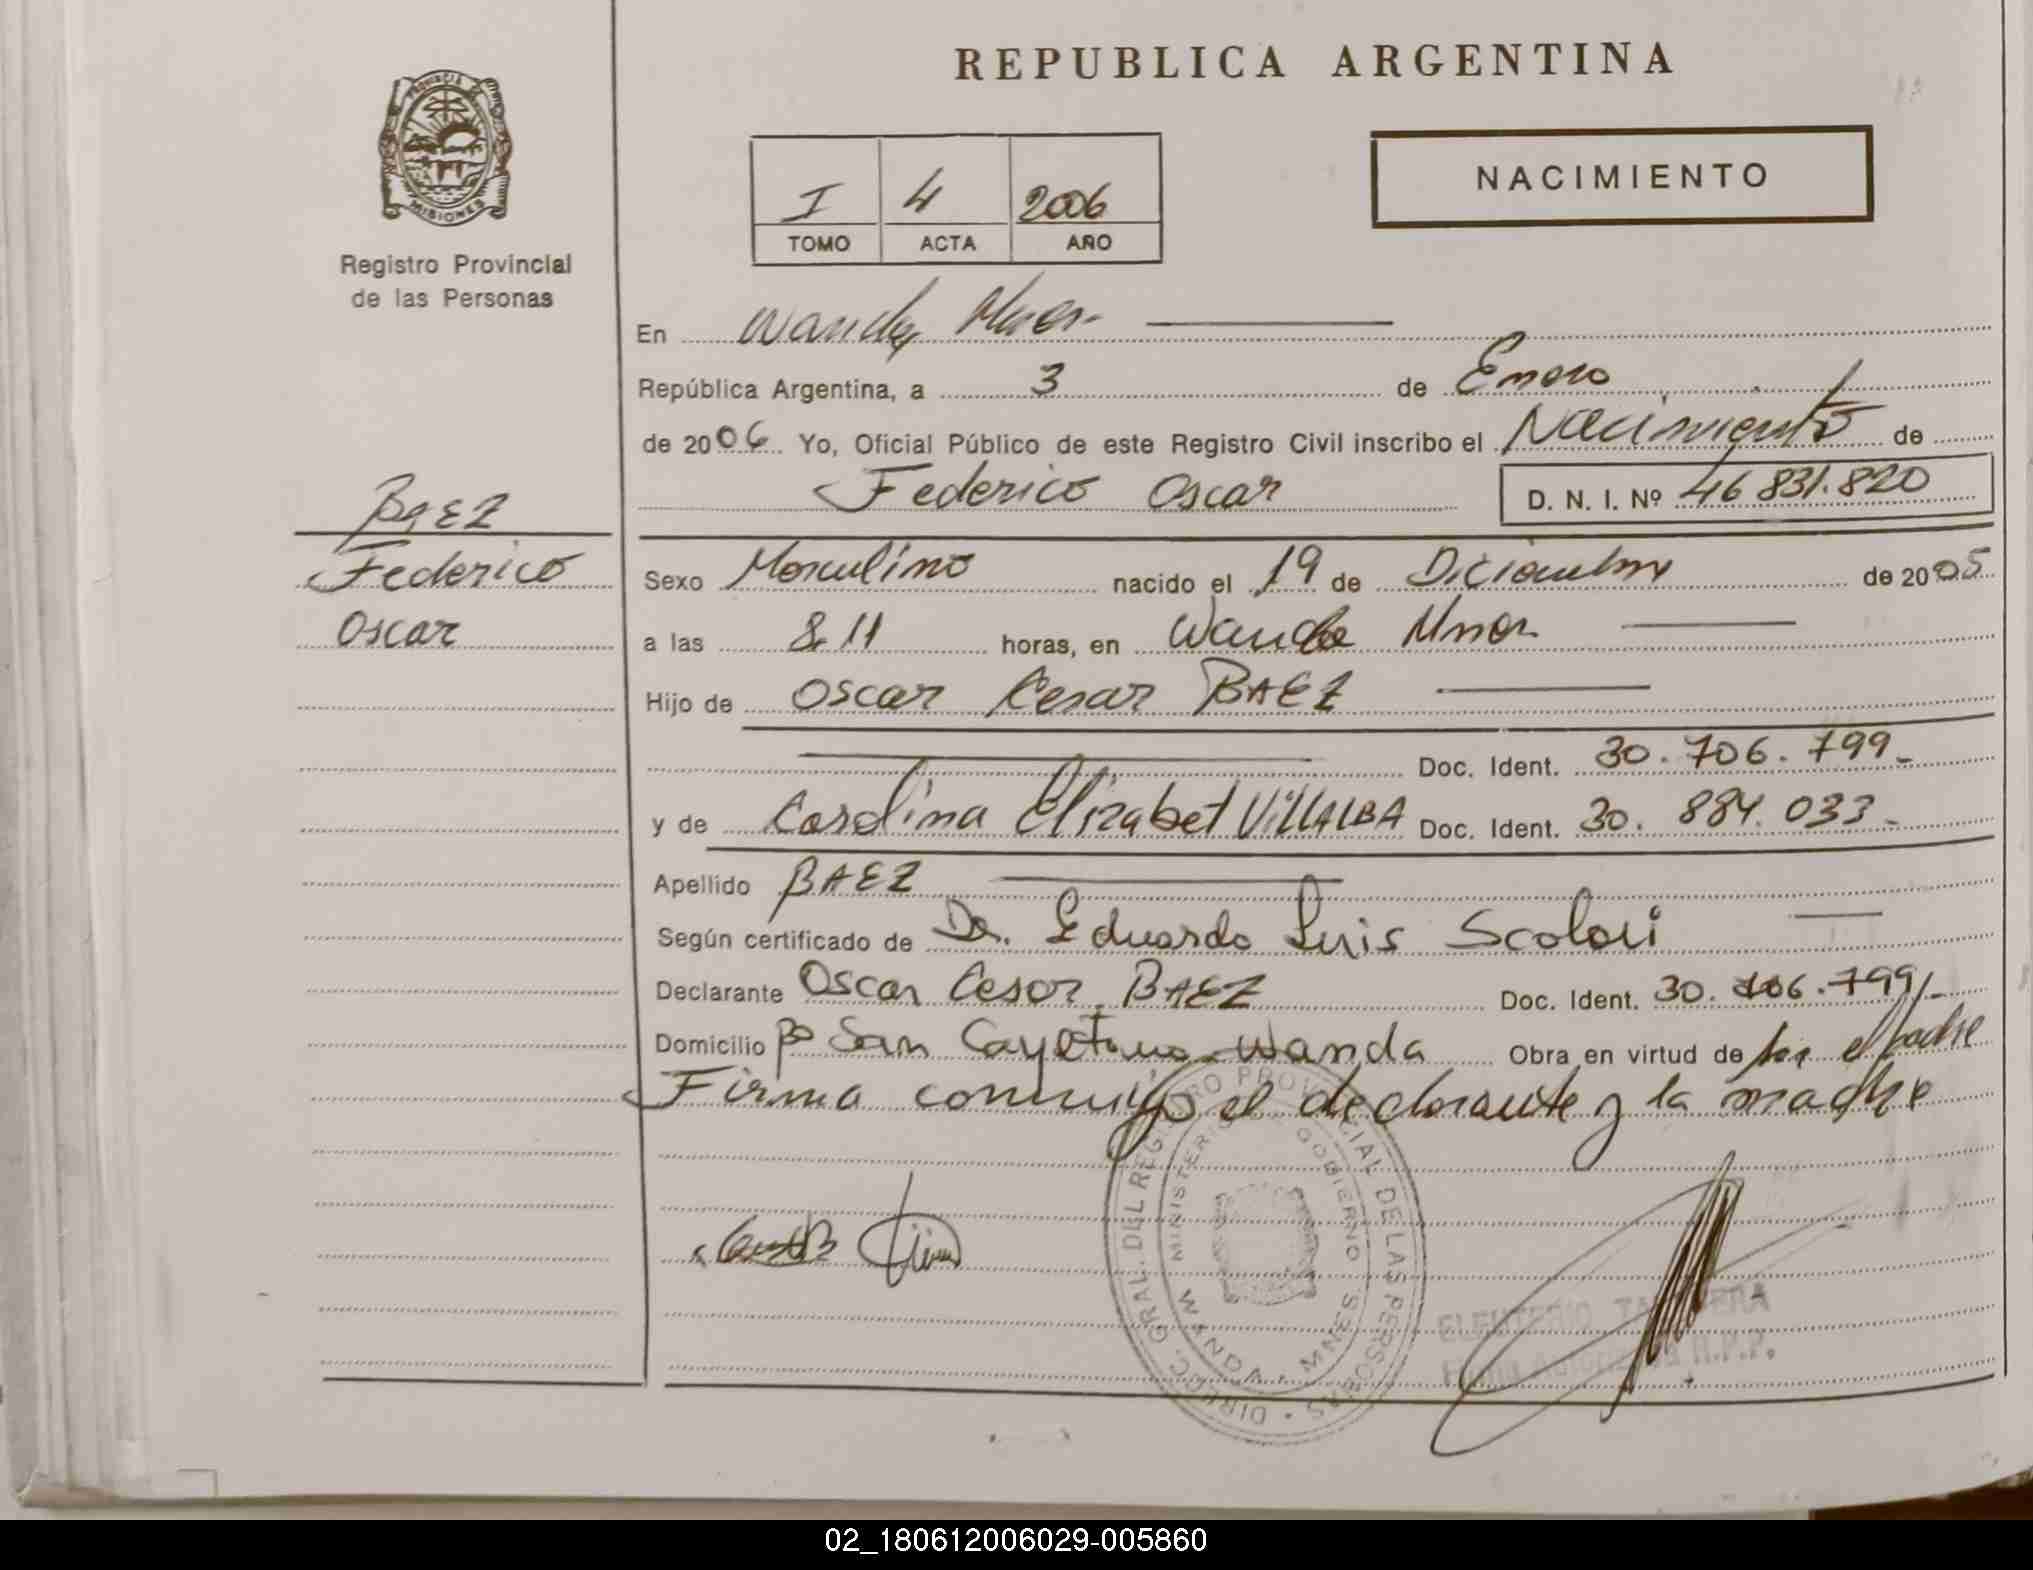 REPUBLICA ARGENTINA
PROVINCIA DE
MISIONES
Registro Provincial
de las Personas
NACIMIENTO
I 4 2006
TOMO ACTA AÑO
En Wanda Mnes.
República Argentina, a 3 de Enero
de 2006 Yo, Oficial Público de este Registro Civil inscribo el Nacimiento de
Federico Oscar D. N. I. Nº 46 831.820
BAEZ
Federico
Oscar
Sexo Masculino nacido el 19 de Diciembre de 2005
a las 8.11 horas, en Wanda Mnes
Hijo de Oscar Cesar BAEZ
Doc. Ident. 30.706.799-
y de Carolina Elizabet VILLALBA Doc. Ident. 30.884.033-
Apellido BAEZ
Según certificado de Dr. Eduardo Luis Scolari
Declarante Oscar Cesar BAEZ Doc. Ident. 30.706.799/-
Domicilio Bº San Cayetano-Wanda Obra en virtud de ser el padre
Firma conmigo el declarante y la madre
DIRECC. GRAL. DEL REGISTRO PROVINCIAL DE LAS PERSONAS
MINISTERIO DE GOBIERNO
WANDA - MNES
ELEUTERIO
Firma Autorizada R.P.P.
02_180612006029-005860